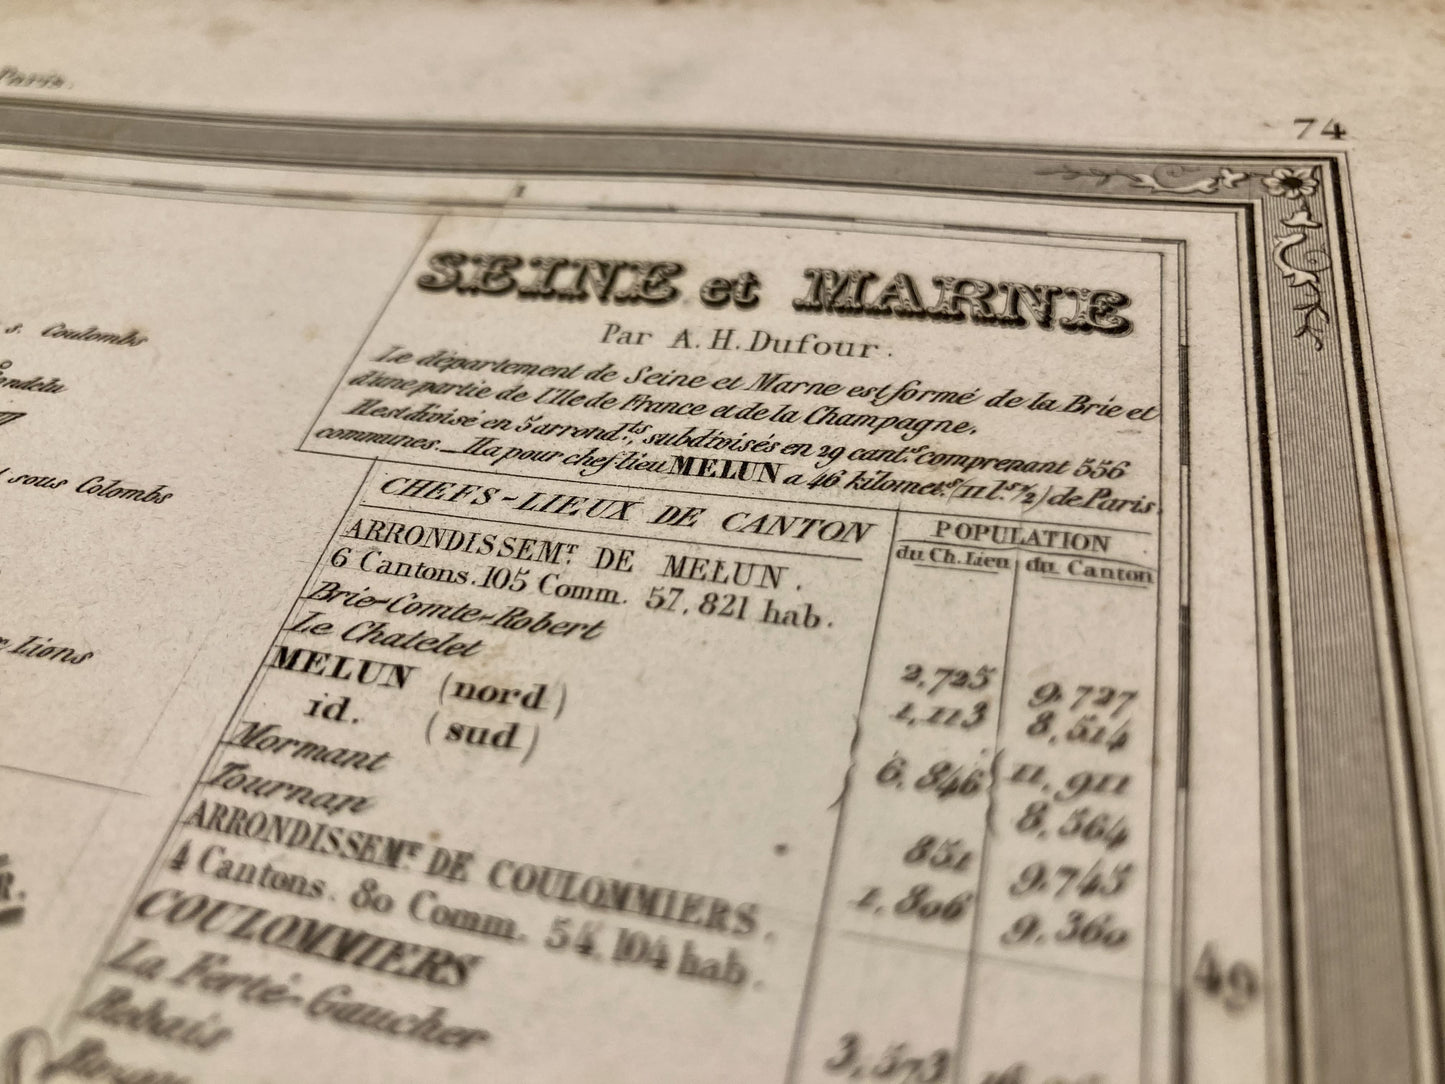 Paris.
74
1
SEINE et MARNE
Par A. H. Dufour.
Le département de Seine et Marne est formé de la Brie et
d'une partie de l'Ile de France et de la Champagne.
Il est divisé en 5 arrond.ts, subdivisés en 29 cant.s comprenant 556
communes. _ Il a pour chef lieu MELUN a 46 kilomet.s (11 l.s 1/2) de Paris.
CHEFS-LIEUX DE CANTON
POPULATION
du Ch. Lieu
du Canton
ARRONDISSEM.T DE MELUN.
6 Cantons. 105 Comm. 57,821 hab.
Brie-Comte-Robert 2,725 9,727
Le Chatelet 1,113 8,514
MELUN (nord) 6,846 11,911
id. (sud) 8,564
Mormant 851 9,745
Tournan 1,806 9,360
ARRONDISSEM.T DE COULOMMIERS.
4 Cantons. 80 Comm. 54,104 hab.
COULOMMIERS 3,573
La Ferté-Gaucher
Rebais
49
s. Coulombs
sous Colombs
Lions